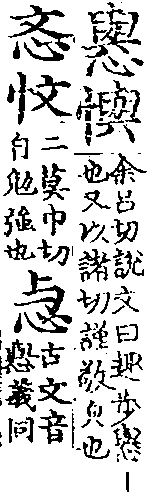 懙㦛余呂切說文曰趣步懙
也又以諸切謹敬皃也
忞忟二莫巾切
自勉強也
古文音
義同